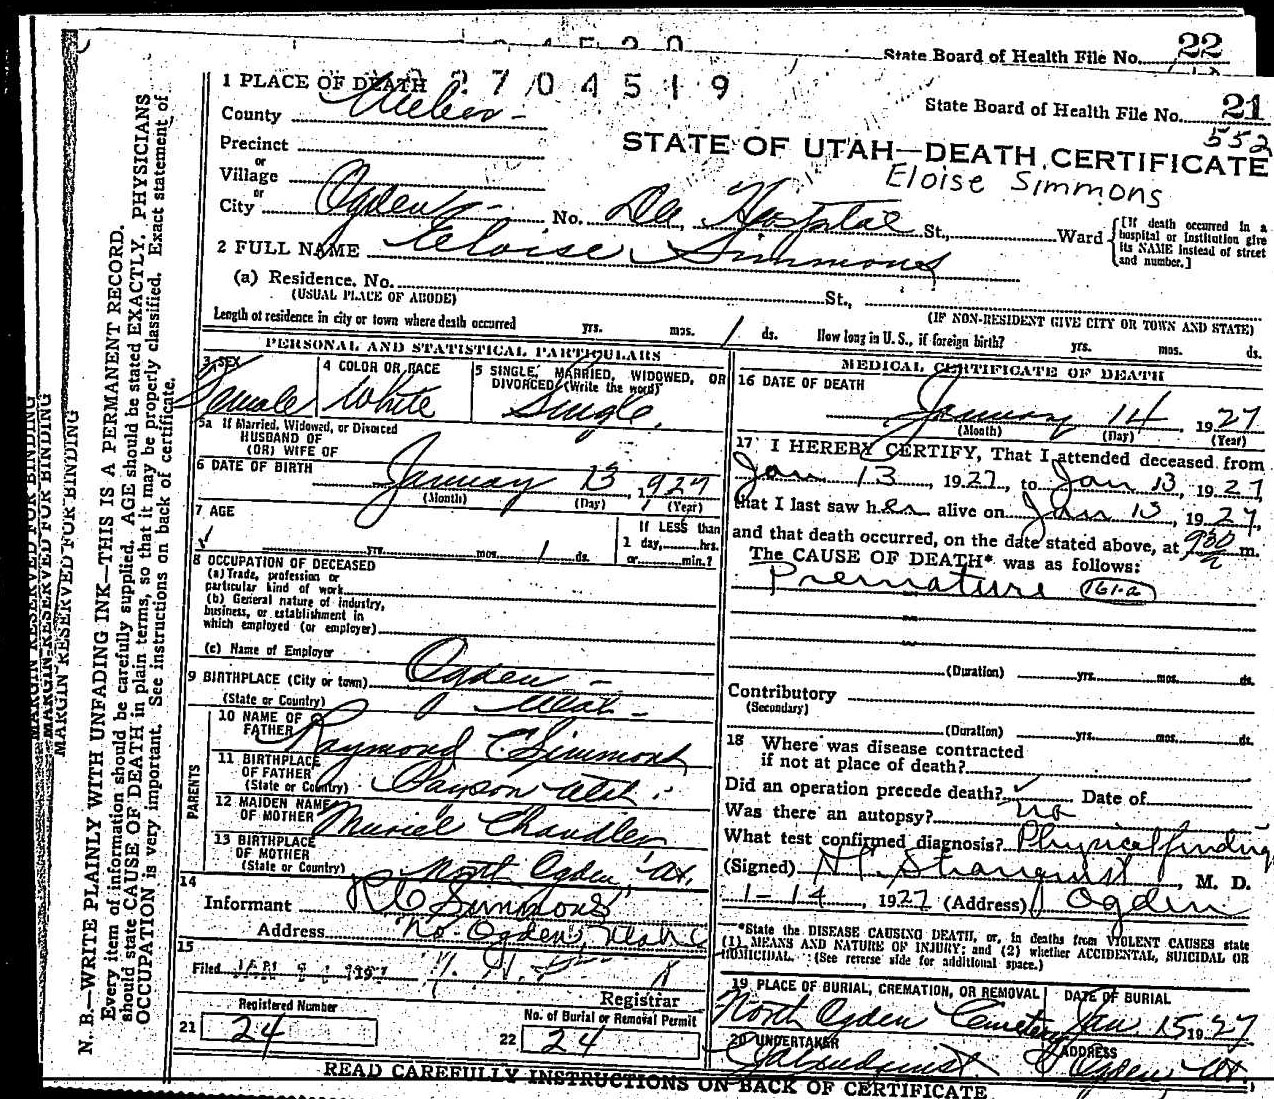 State Board of Health File No. 22
2704519
State Board of Health File No. 21
552
1 PLACE OF DEATH
County Weber
STATE OF UTAH—DEATH CERTIFICATE
Eloise Simmons
Precinct
or
Village
or
City Ogden No. Dee Hospital St., Ward [If death occurred in a hospital or institution give its NAME instead of street and number.]
2 FULL NAME Eloise Simmons
(a) Residence. No. St.,
(USUAL PLACE OF ABODE) (IF NON-RESIDENT GIVE CITY OR TOWN AND STATE)
Length of residence in city or town where death occurred yrs. mos. 1 ds. How long in U. S., if foreign birth? yrs. mos. ds.
PERSONAL AND STATISTICAL PARTICULARS
3 SEX Female
4 COLOR OR RACE White
5 SINGLE, MARRIED, WIDOWED, OR DIVORCED (Write the word) Single
5a If Married, Widowed, or Divorced
HUSBAND OF
(OR) WIFE OF
6 DATE OF BIRTH January 13, 1927
(Month) (Day) (Year)
7 AGE
yrs. mos. 1 ds.
If LESS than
1 day, hrs.
or min.?
8 OCCUPATION OF DECEASED
(a) Trade, profession or
particular kind of work
(b) General nature of industry,
business, or establishment in
which employed (or employer)
(c) Name of Employer
9 BIRTHPLACE (City or town) Ogden
(State or Country) Utah
PARENTS
10 NAME OF FATHER Raymond C Simmons
11 BIRTHPLACE OF FATHER
(State or Country) Payson Utah
12 MAIDEN NAME OF MOTHER Muriel Chandler
13 BIRTHPLACE OF MOTHER
(State or Country) North Ogden, Ut.
14
Informant R C Simmons
Address No. Ogden, Utah
15
Filed 1927
Registrar
Registered Number
21 24
No. of Burial or Removal Permit
22 24
MEDICAL CERTIFICATE OF DEATH
16 DATE OF DEATH
January 14 1927
(Month) (Day) (Year)
17 I HEREBY CERTIFY, That I attended deceased from
Jan 13, 1927, to Jan 13, 1927
that I last saw her alive on Jan 13, 1927,
and that death occurred, on the date stated above, at 930 m.
The CAUSE OF DEATH* was as follows:
Premature 161-a
(Duration) yrs. mos. ds.
Contributory
(Secondary)
(Duration) yrs. mos. ds.
18 Where was disease contracted
if not at place of death?
Did an operation precede death? Date of
Was there an autopsy? no
What test confirmed diagnosis? Physical finding
(Signed) Stranquist, M. D.
1-14, 1927 (Address) Ogden
*State the DISEASE CAUSING DEATH, or, in deaths from VIOLENT CAUSES state
(1) MEANS AND NATURE OF INJURY; and (2) whether ACCIDENTAL, SUICIDAL OR
HOMICIDAL. (See reverse side for additional space.)
19 PLACE OF BURIAL, CREMATION, OR REMOVAL DATE OF BURIAL
North Ogden Cemetery Jan 15 1927
20 UNDERTAKER ADDRESS
Ogden Ut
READ CAREFULLY INSTRUCTIONS ON BACK OF CERTIFICATE
MARGIN RESERVED FOR BINDING
MARGIN RESERVED FOR BINDING
MARGIN RESERVED FOR BINDING
N. B.—WRITE PLAINLY WITH UNFADING INK—THIS IS A PERMANENT RECORD.
Every item of information should be carefully supplied. AGE should be stated EXACTLY. PHYSICIANS
should state CAUSE OF DEATH in plain terms, so that it may be properly classified. Exact statement of
OCCUPATION is very important. See instructions on back of certificate.